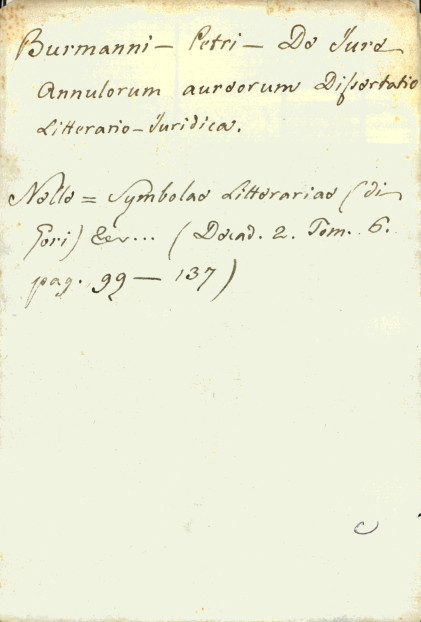 Burmanni - Petri - De Jure
Annulorum aureorum Dissertatio
Litterario-Juridica.
Nelle = Symbolae Litterariae (di
Gori) &c... (Decad. 2. Tom. 6.
pag. 99 - 137)
C